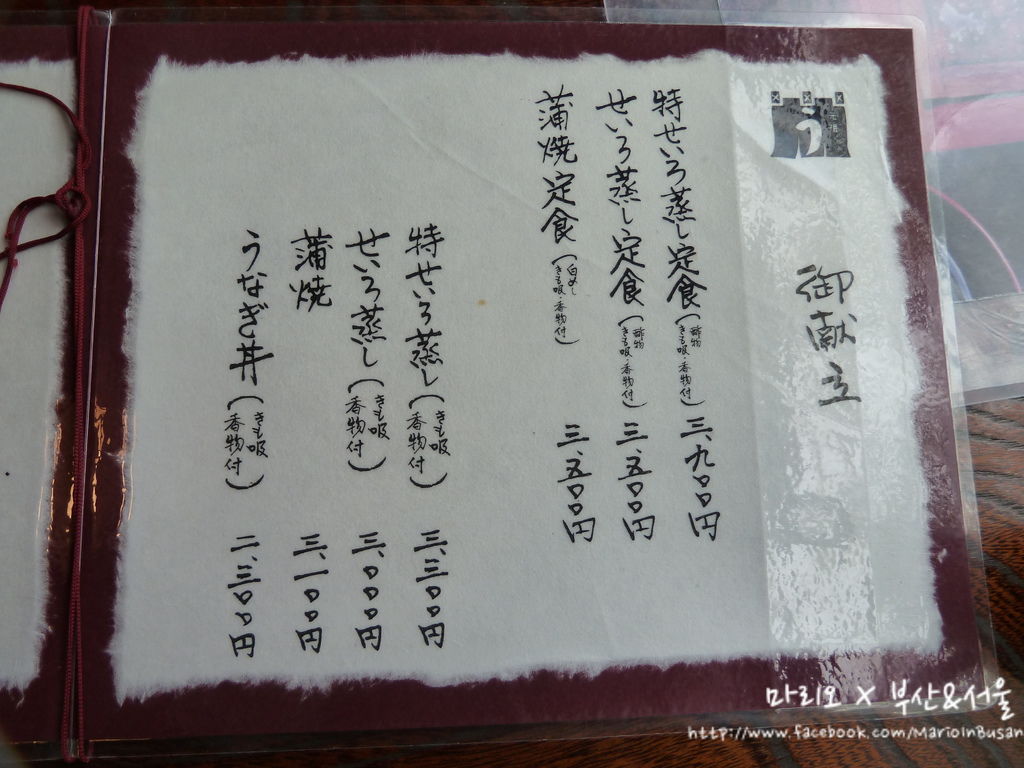 う
御献立
特せいろ蒸し定食(酢物 きも吸・香物付) 三、九〇〇円
せいろ蒸し定食(酢物 きも吸・香物付) 三、五〇〇円
蒲焼定食(白めし きも吸・香物付) 三、五〇〇円
特せいろ蒸し(きも吸 香物付) 三、三〇〇円
せいろ蒸し(きも吸 香物付) 三、〇〇〇円
蒲焼 三、一〇〇円
うなぎ丼(きも吸 香物付) 二、三〇〇円
마리오 X 부산&서울
http://www.facebook.com/MarioInBusan